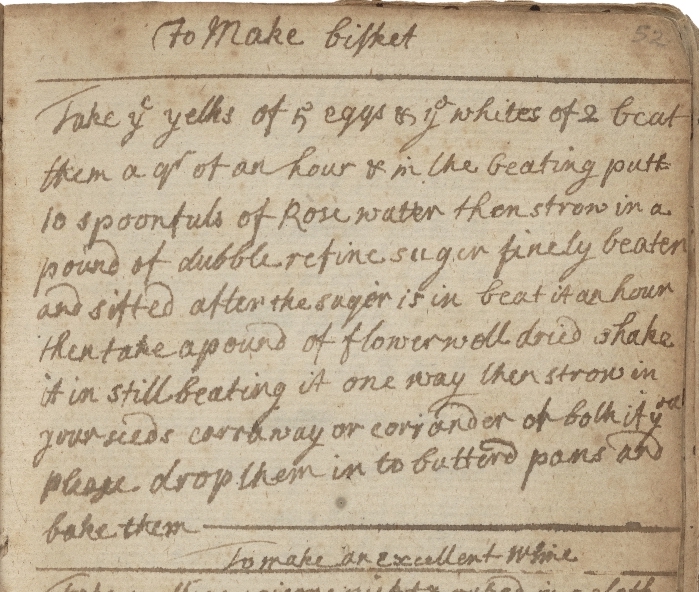 52
To Make bisket
Take ye yelks of 5 eggs & ye whites of 2 beat
them a qr of an hour & in the beating putt
10 spoonfuls of Rose water then strow in a
pound of dubble refine suger finely beaten
and sifted after the suger is in beat it an hour
then take a pound of flower well dried shake
it in still beating it one way then strow in
your seeds carraway or coriander or both if you
please drop them in to butterd pans and
bake them
To make an excellent Wine
Take